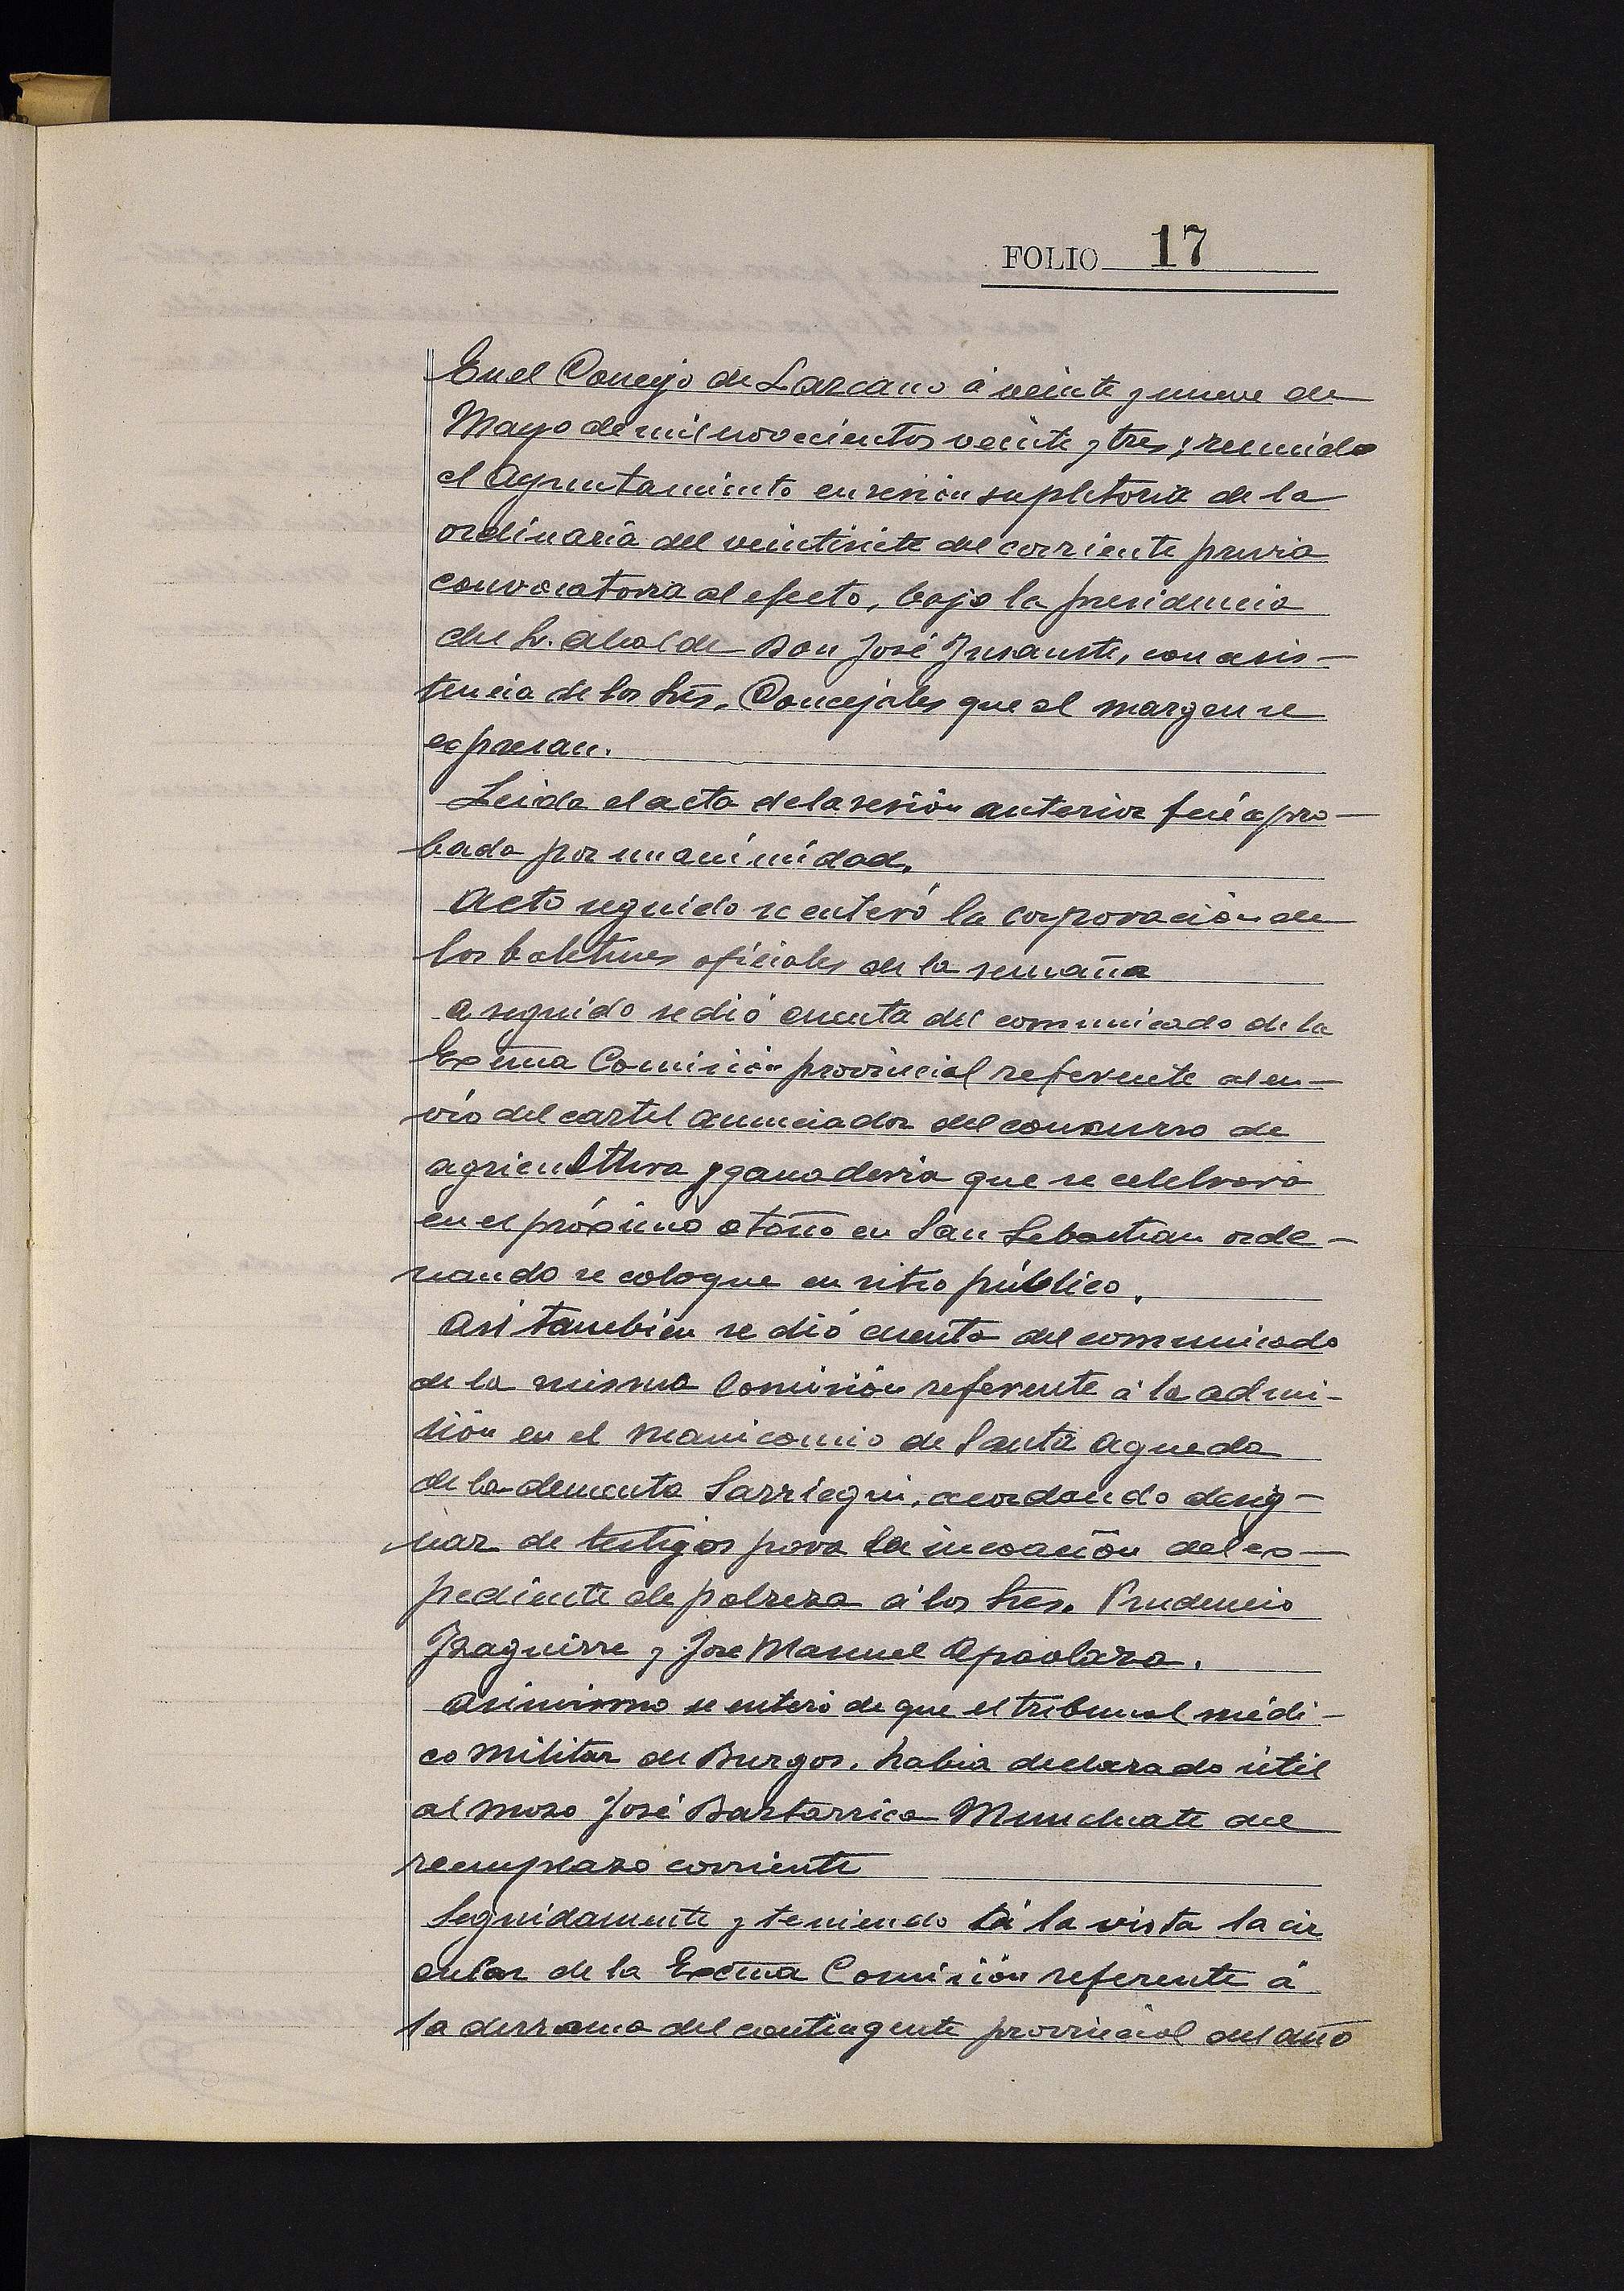 FOLIO 17
En el Concejo de Lazcano á veinte y nueve de
Mayo de mil novecientos veinte y tres; reunido
el Ayuntamiento en sesión supletoria de la
ordinaria del veintisiete del corriente previa
convocatoria al efecto, bajo la presidencia
del Sr. Alcalde Don José Insausti, con asis-
tencia de los Sres. Concejales que al margen se
expresan.
Leida el acta de la sesión anterior fué apro-
bada por unanimidad.
Acto seguido se enteró la corporación de
los boletines oficiales de la semana
A seguido se dió cuenta del comunicado de la
Exma Comisión provincial referente al en-
vio del cartel anunciador del concurso de
agricultura y ganaderia que se celebrará
en el próximo otoño en San Sebastian orde-
nando se coloque en sitio público.
Asi también se dió cuenta del comunicado
de la misma Comisión referente á la admi-
sión en el manicomio de Santa Agueda
de la dementa Sarriegui, acordando desig-
nar de testigos para la incoación del ex-
pediente de pobreza á los Sres. Prudencio
Izaguirre y Jose Manuel Apaolaza.
Asimismo se enteró de que el tribunal médi-
co militar de Burgos, habia declarado útil
al mozo José Bastarrica Munduate del
reemplazo corriente
Seguidamente y teniendo á la vista la cir
cular de la Excma Comisión referente á
la derrama del contingente provincial del año